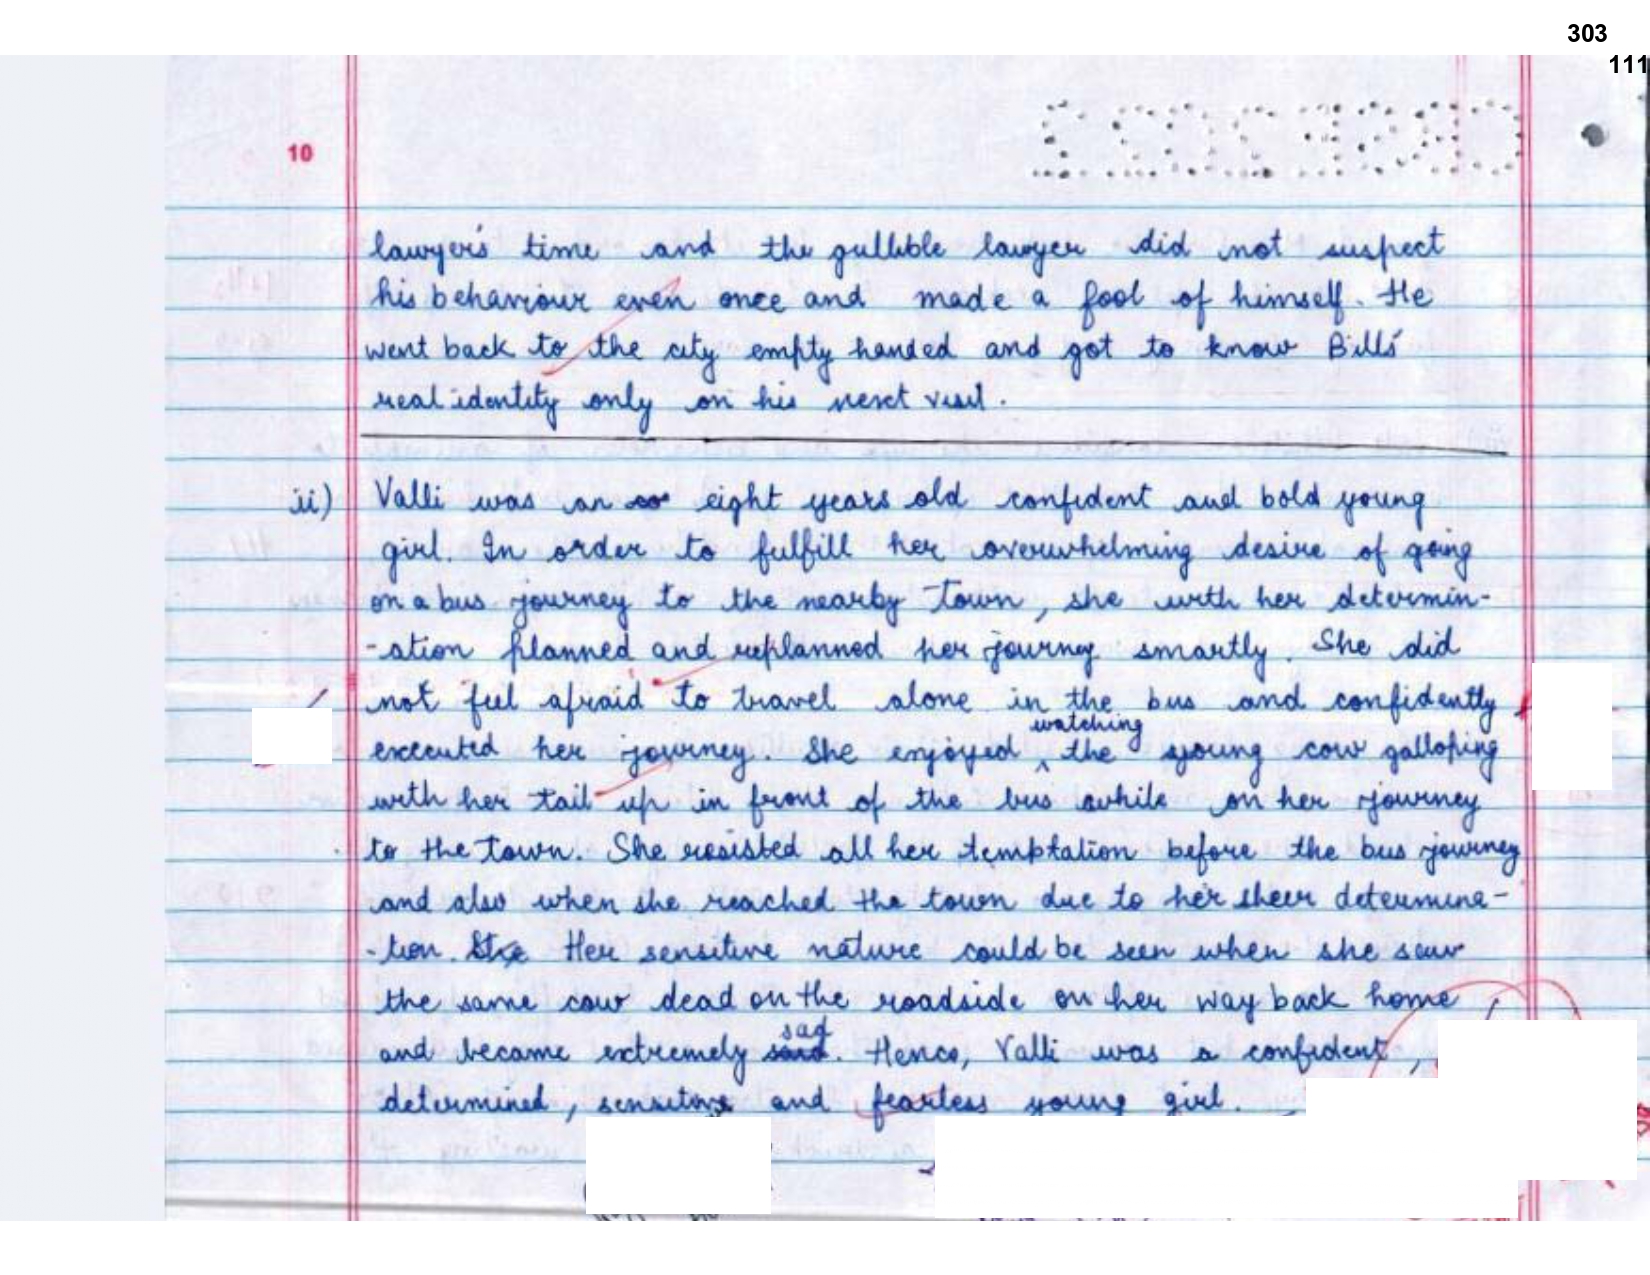 303
111
10
lawyer's time and the gullible lawyer did not suspect
his behaviour even once and made a fool of himself. He
went back to the city empty handed and got to know Bill's
real identity only on his next visit.
ii) Valli was an eight years old confident and bold young
girl. In order to fulfill her overwhelming desire of going
on a bus journey to the nearby town, she with her determin-
-ation planned and replanned her journey smartly. She did
not feel afraid to travel alone in the bus and confidently
executed her journey. She enjoyed watching the young cow galloping
with her tail up in front of the bus while on her journey
to the town. She resisted all her temptation before the bus journey
and also when she reached the town due to her sheer determina-
-tion. She Her sensitive nature could be seen when she saw
the same cow dead on the roadside on her way back home
and became extremely sad. Hence, Valli was a confident,
determined, sensitive and fearless young girl.